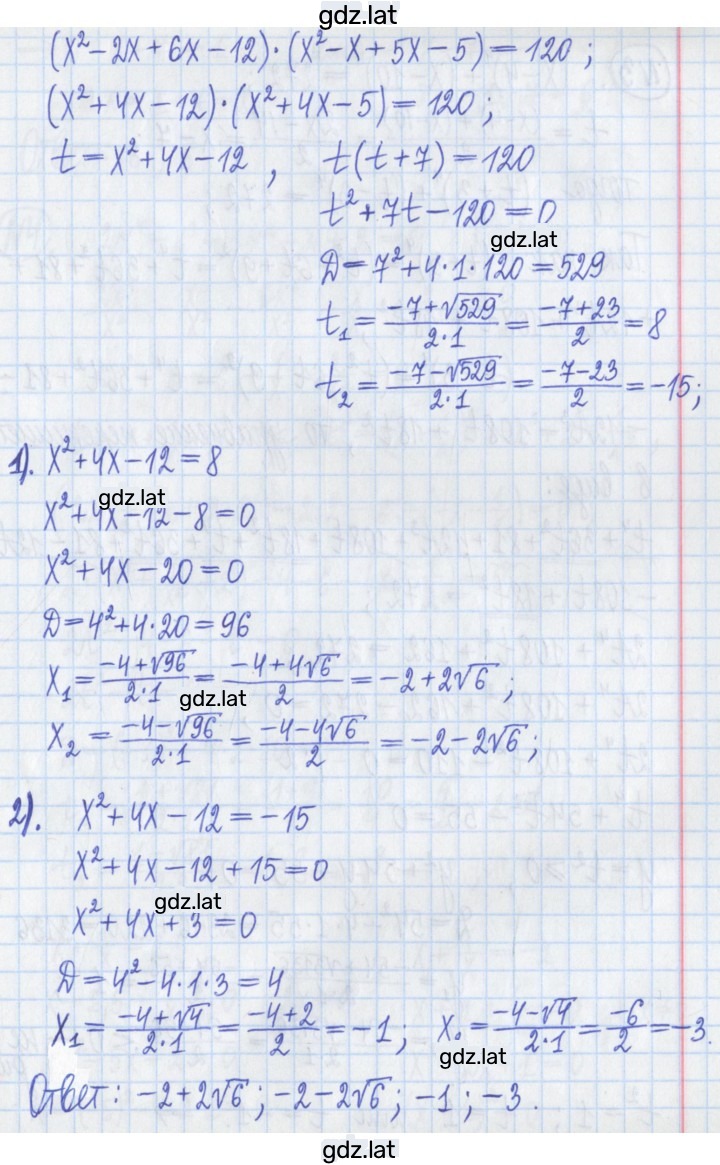 gdz.lat
(x²-2x+6x-12)·(x²-x+5x-5)=120;
(x²+4x-12)·(x²+4x-5)=120;
t=x²+4x-12, t(t+7)=120
t²+7t-120=0
gdz.lat
D=7²+4·1·120=529
t₁=(-7+√529)/(2·1)=(-7+23)/2=8
t₂=(-7-√529)/(2·1)=(-7-23)/2=-15;
1). x²+4x-12=8
gdz.lat
x²+4x-12-8=0
x²+4x-20=0
D=4²+4·20=96
x₁=(-4+√96)/(2·1)=(-4+4√6)/2=-2+2√6;
gdz.lat
x₂=(-4-√96)/(2·1)=(-4-4√6)/2=-2-2√6;
2). x²+4x-12=-15
x²+4x-12+15=0
gdz.lat
x²+4x+3=0
D=4²-4·1·3=4
x₁=(-4+√4)/(2·1)=(-4+2)/2=-1; x₂=(-4-√4)/(2·1)=-6/2=-3.
gdz.lat
Ответ: -2+2√6; -2-2√6; -1; -3.
gdz.lat